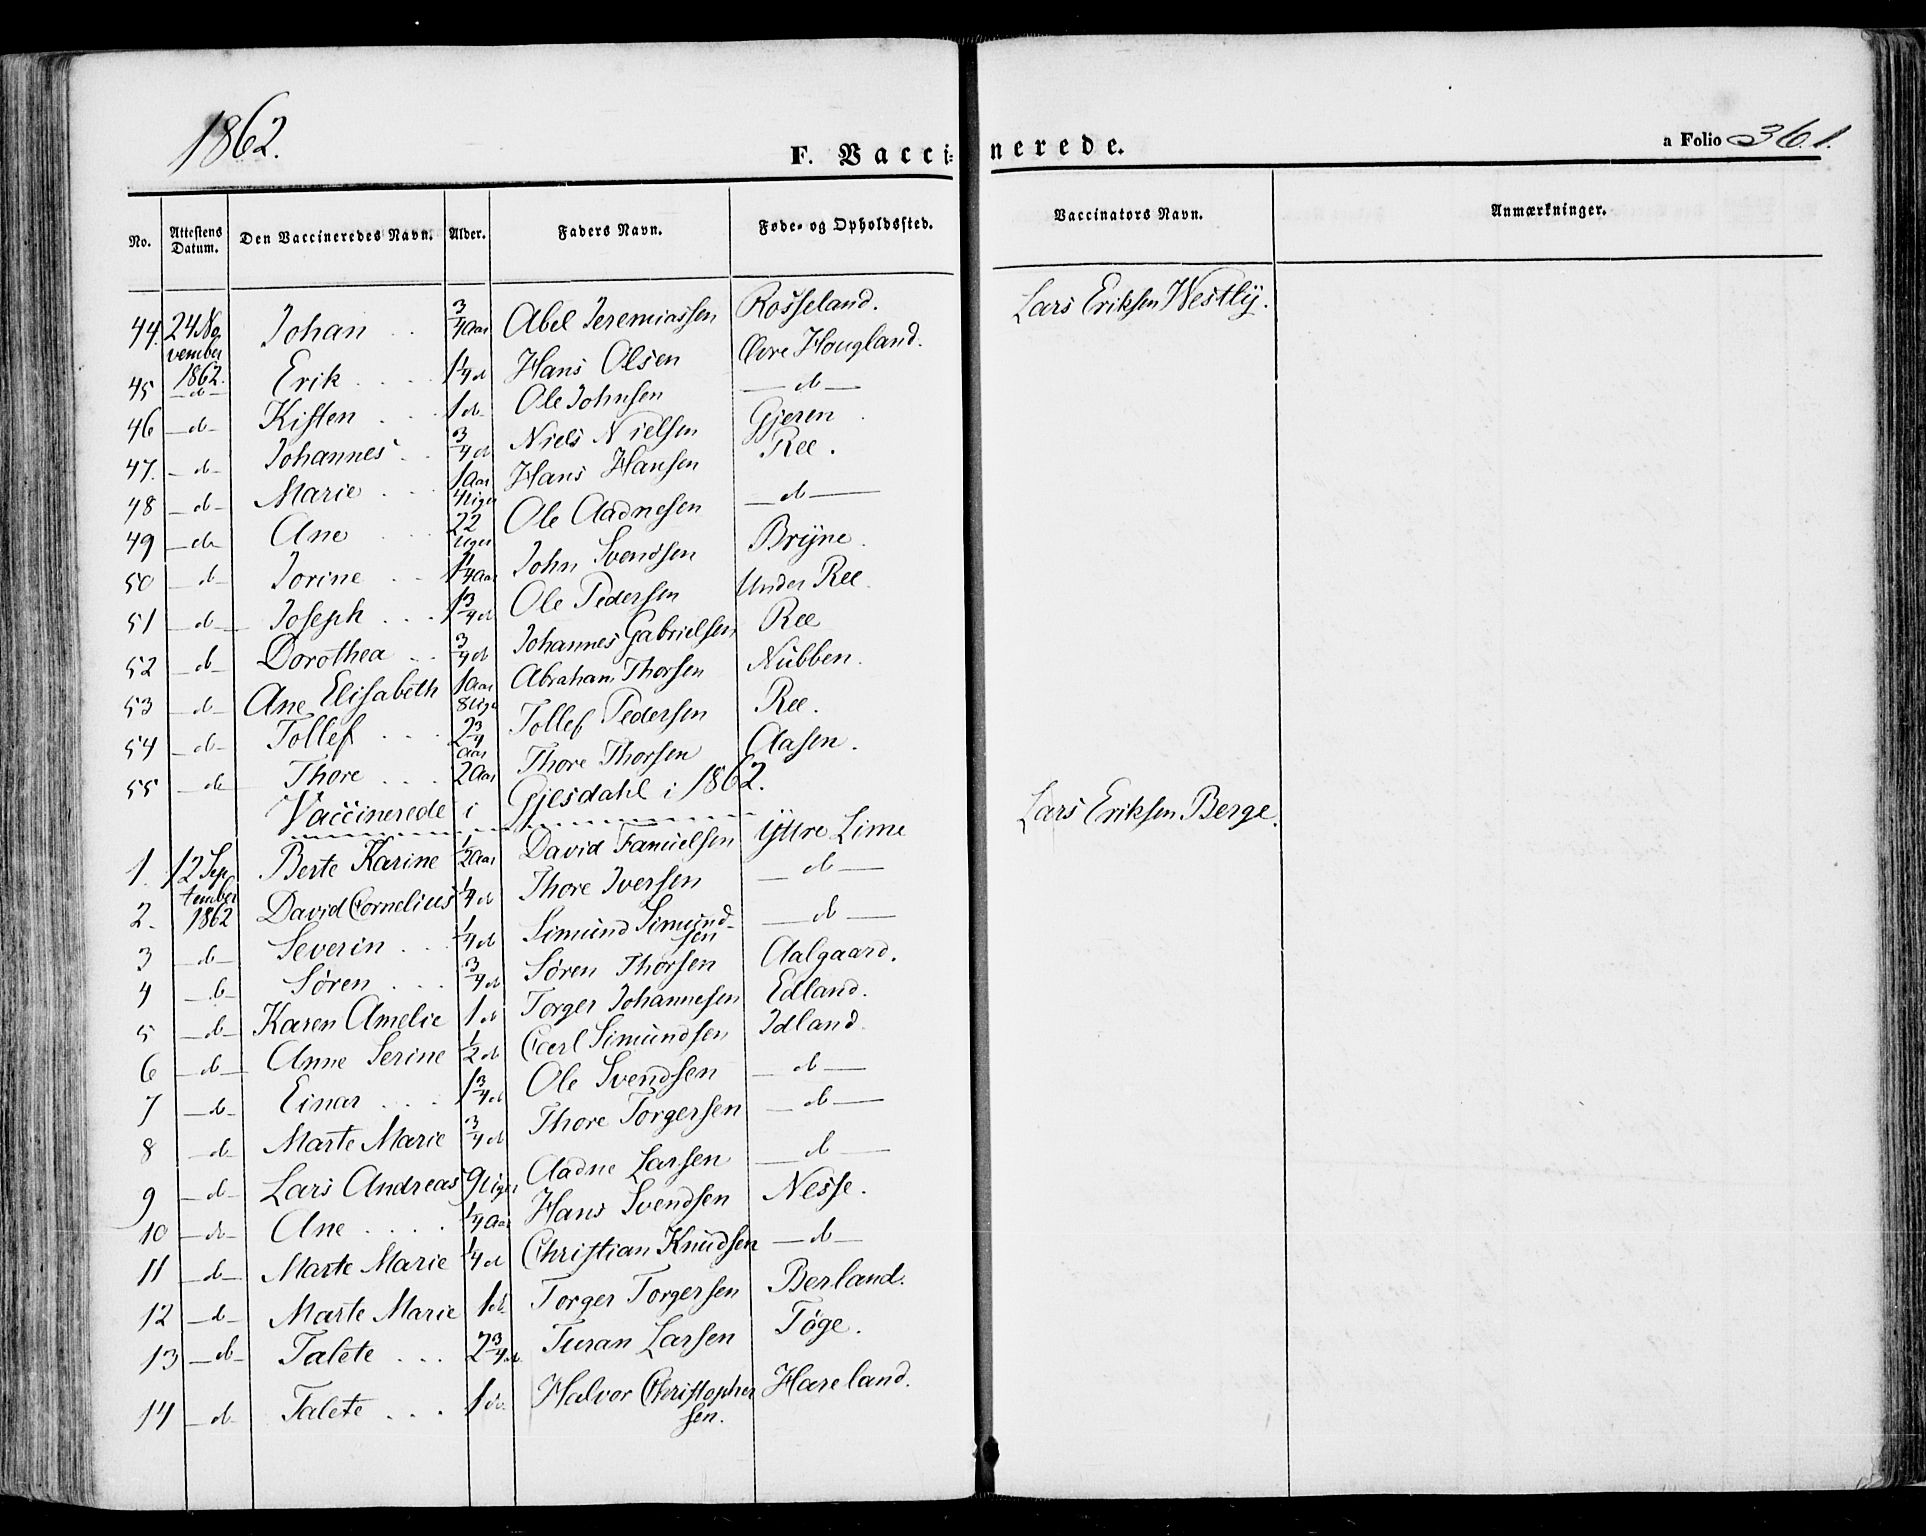 1862.
F. Vacci-nerede.
a Folio 361.
No. Attestens Datum. Den Vaccineredes Navn. Alder. Faders Navn. Føde- og Opholdssted. Vaccinators Navn. Anmærkninger.
44. 24 November 1862. Johan . . 3/4 Aar Abel Jeremiassen Rosseland. Lars Eriksen Westly.
45 —d— Erik . . . . 1 1/4 d Hans Olsen Øvre Hougland.
46 —d— Kisten . . . 1 d Ole Johnsen —d—
47. —d— Johannes . . 3/4 d Niels Nielsen Gjeren
48 —d— Marie . . . 1 Aar 4 Uger Hans Hansen Ree.
49 —d— Ane . . . . 22 Uger Ole Aadnesen —d—
50 —d— Jorine . . 1 1/4 Aar John Svendsen Bryne.
51 —d— Joseph . . . 1 3/4 d Ole Pedersen Under Ree.
52 —d— Dorothea . . 3/4 d Johannes Gabrielsen Ree
53 —d— Ane Elisabeth 1 Aar 8 Uger Abraham Thorsen Nubben.
54 —d— Tollef . . . 2 3/4 Aar Tollef Pedersen Ree.
55 —d— Thore . . . 2 Aar Thore Thorsen Aasen.
Vaccinerede i Gjesdahl i 1862.
1. 12 September 1862 Berte Karine 1/2 Aar David Samuelsen Yttre Lime Lars Eriksen Berge.
2. David Cornelius 1/4 d Thore Iversen —d—
3 —d— Severin . . 1/4 d Simund Simundsen —d—
4 —d— Søren . . . 3/4 d Søren Thorsen Aalgaard.
5 —d— Karen Amelie 1 d Torger Johannesen Edland.
6 —d— Anne Serine 1/2 d Carl Simundsen Idland.
7 —d— Einar . . . 1 3/4 d Ole Svendsen —d—
8 —d— Marte Marie 3/4 d Thore Torgersen —d—
9 —d— Lars Andreas 9 Uger Aadne Larsen —d—
10 —d— Ane . . . . 1/4 Aar Hans Svendsen Nesse.
11 —d— Marte Marie 1/4 d Christian Knudsen —d—
12 —d— Marte Marie 1 d Torger Torgersen Berland.
13 —d— Talete . . . 2 3/4 d Turan Larsen Tøge.
14 —d— Talete . . . 1 d Halvor Christophersen. Hareland.